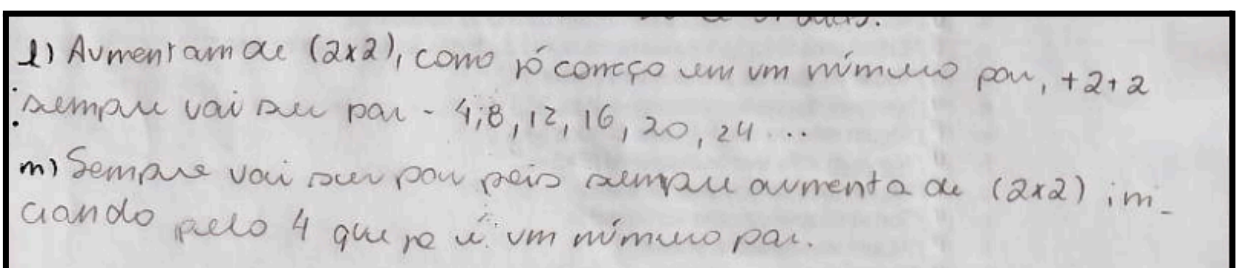 l) Aumentam de (2x2), como já começo em um número par, +2+2
sempre vai ser par - 4,8,12,16,20,24...
m) Sempre vai ser par pois sempre aumenta de (2x2) ini-
ciando pelo 4 que já é um número par.